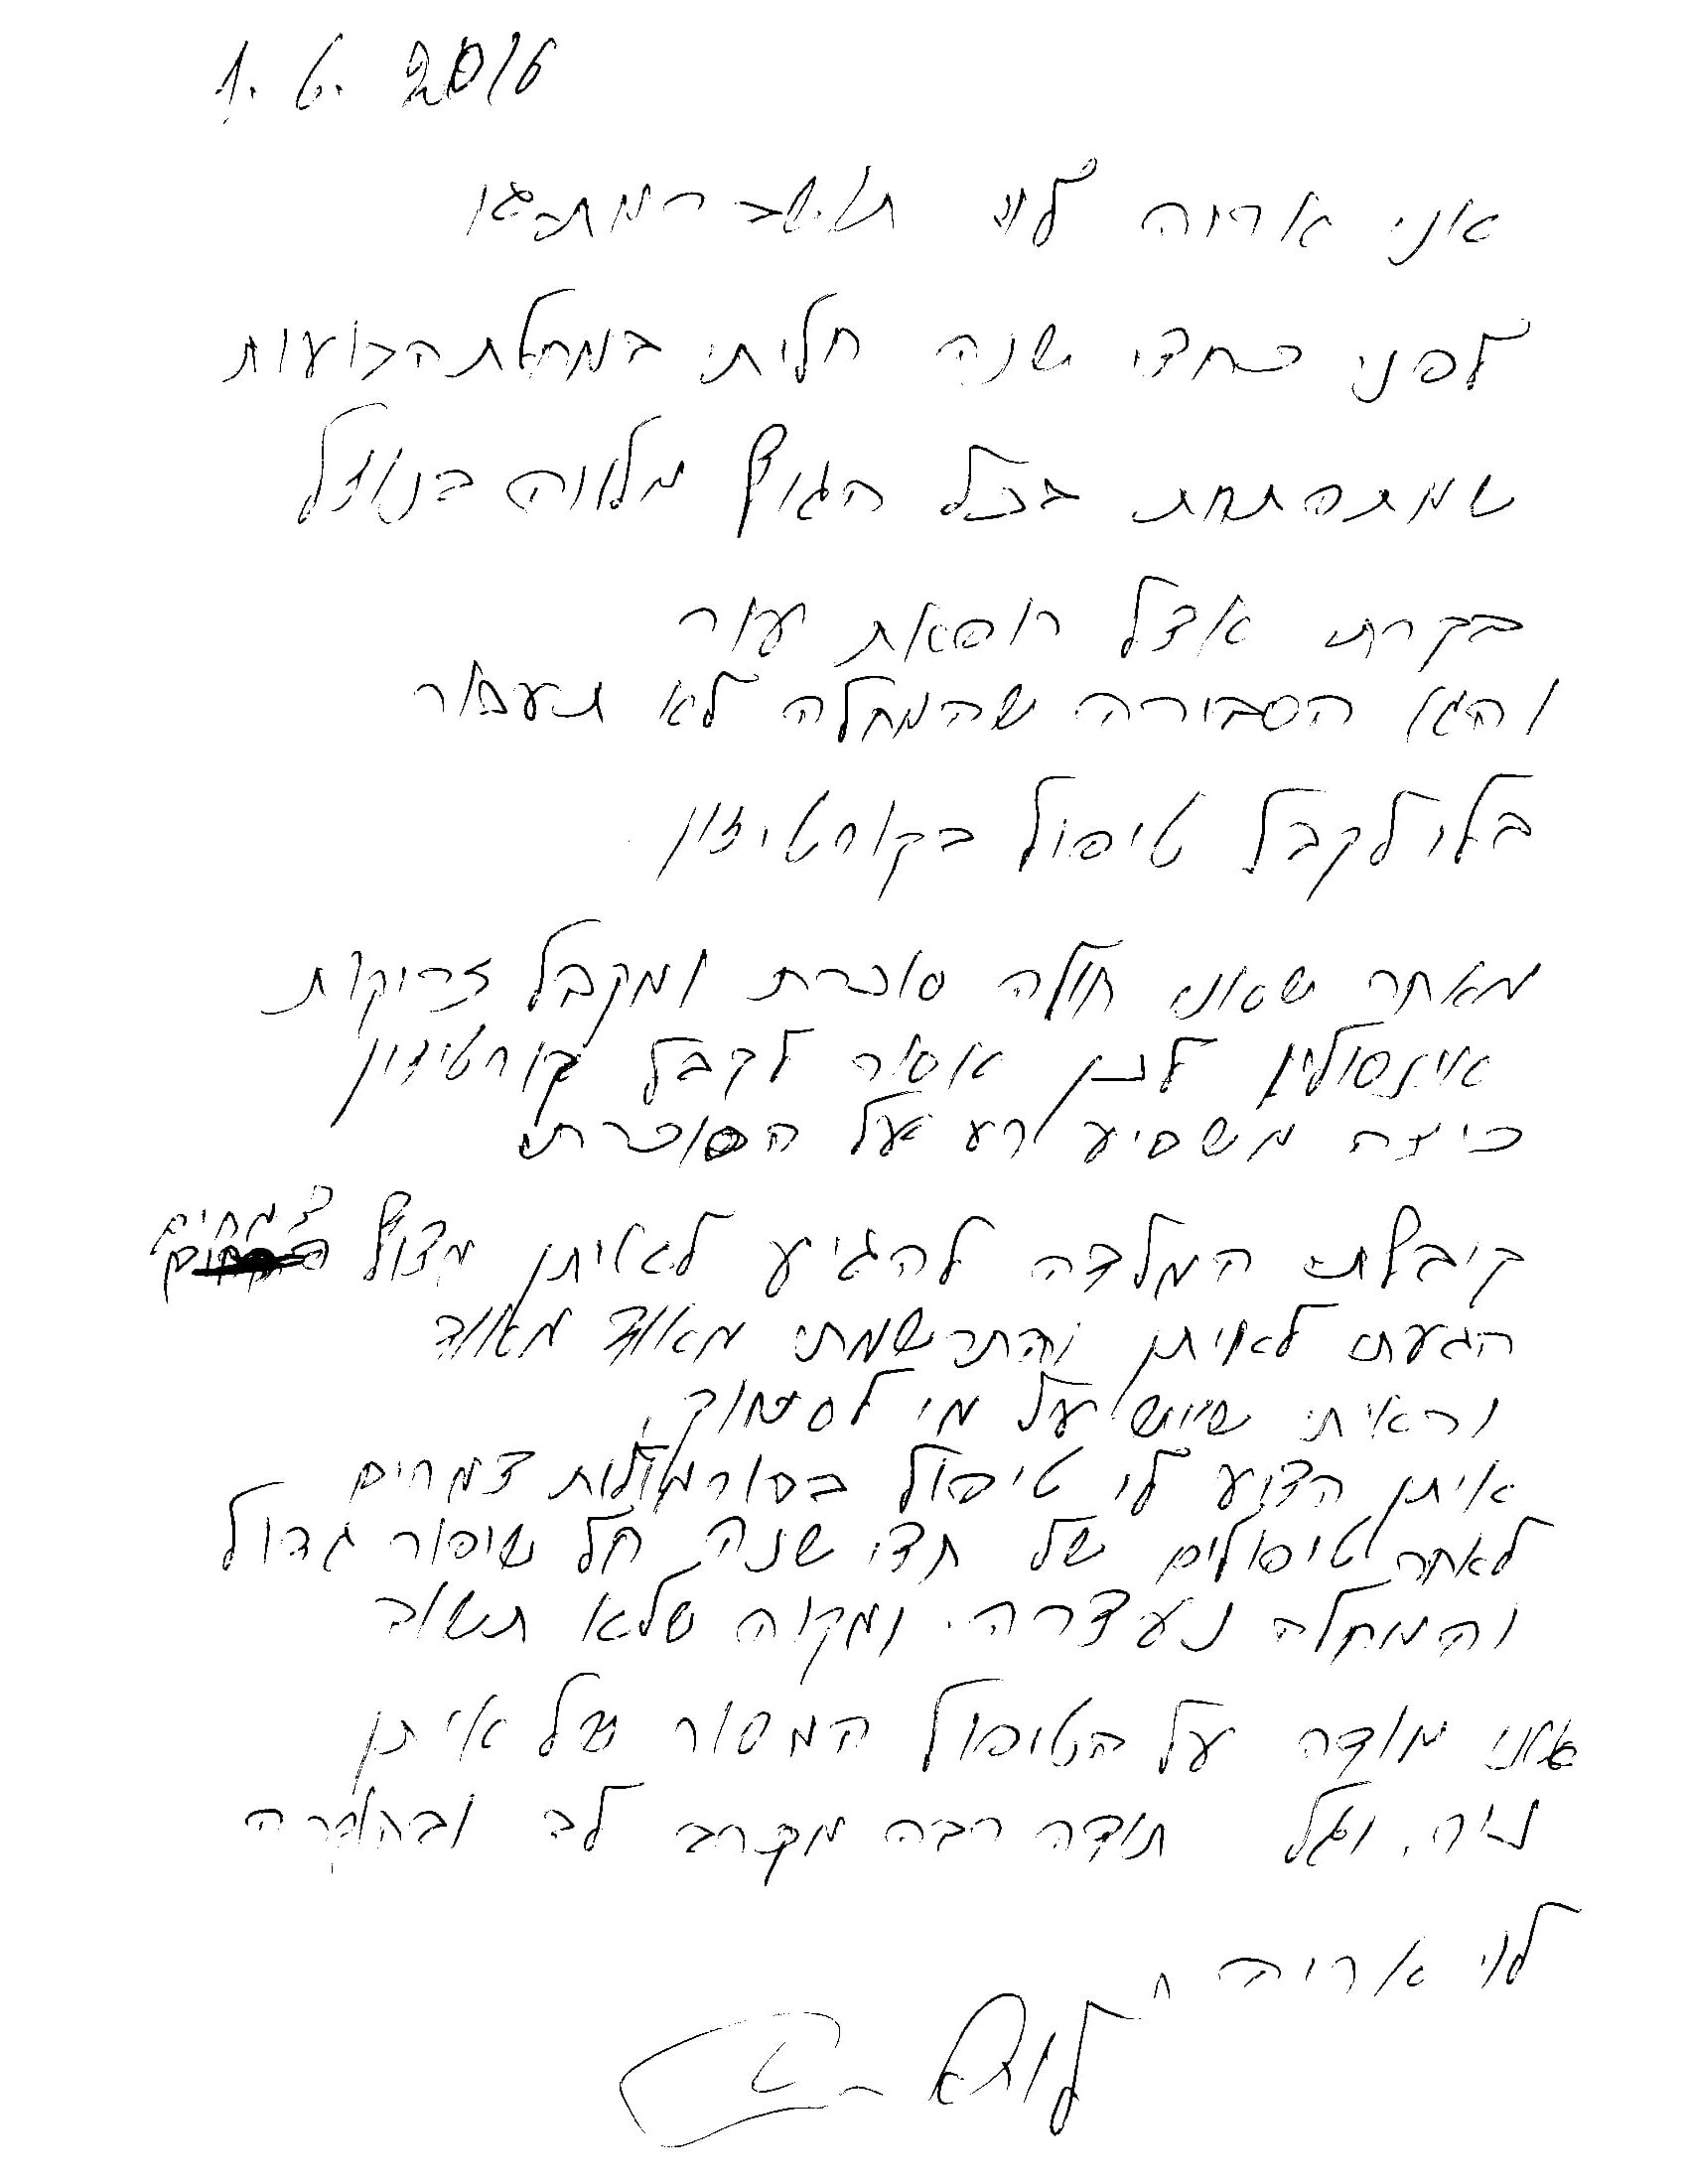 1.6.2016
אני אריה לוי תושב רמת-גן
לפני כחצי שנה חליתי במחלת הבועות
שמתפתחת בכל הגוף מלווה בנוזל
בקרתי אצל רופאת עור
והיא הסבירה שהמחלה לא תעבור
בלי לקבל טיפול בקורטיזון
מאחר שאני חולה סוכרת ומקבל זריקות
אינסולין לכן אסור לקבל קורטיזון
כי זה משפיע רע על הסוכרת
קיבלתי המלצה להגיע לאיתן מצוף צמחים
הגעתי לאיתן והתרשמתי מאוד מאוד
וראיתי שיש על מי לסמוך,
איתן הציע לי טיפול בפורמולות צמחים
לאחר טיפולים של חצי שנה חל שיפור גדול
והמחלה נעצרה. ומקוה שלא תשוב
אני מודה על הטיפול המסור של איתן
תודה רבה מקרב לב ובהוקרה
לוי אריה